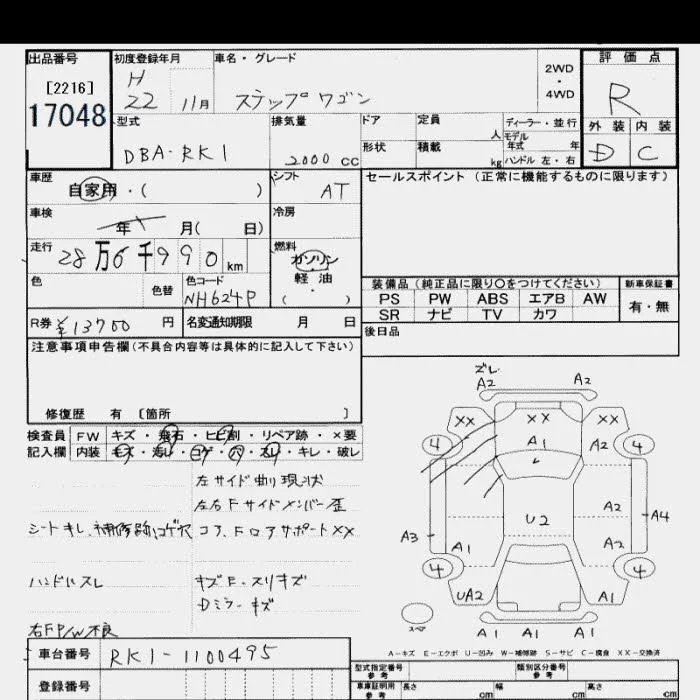 出品番号
[2216]
17048
初度登録年月
H
22 11月
車名・グレード
ステップワゴン
2WD
・
4WD
評価点
R
外装 内装
D C
型式
DBA-RK1
排気量
2000 cc
ドア
定員
人
ディーラー・並行
モデル
年式 年
形状
積載
kg
ハンドル 左・右
車歴
自家用・( )
シフト
AT
セールスポイント（正常に機能するものに限ります）
車検
年 月( 日)
冷房
走行
28万6千990km
燃料
ガソリン
・
軽油
( )
色
色替
色コード
NH624P
装備品（純正品に限り○をつけてください）
新車保証書
PS PW ABS エアB AW
SR ナビ TV カワ
有・無
R券 ¥13700 円
名変通知期限 月 日
後日品
注意事項申告欄（不具合内容等は具体的に記入して下さい）
修復歴 有 〔箇所 〕
検査員 FW キズ・飛石・ヒビ割・リペア跡・×要
記入欄 内装 キズ・汚れ・コゲ・穴・スレ・キレ・破レ
左サイド曲り現状
左右Fサイドメンバー歪
シートキレ、補修跡、コゲ穴
コア、Fロアサポート××
ハンドルスレ
キズE・スリキズ
Dミラーキズ
右FP/W不良
ズレ
A2 A2
×× ×× ××
A1 A2
4 4
U2
A2
A3 A4
A1 A2
4 4
UA2 A1
スペア
A1 A1 A1
A－キズ E－エクボ U－凹み W－補修跡 S－サビ C－腐食 XX－交換済
車台番号 RK1-1100495
登録番号
型式指定番号
参考
類別区分番号
参考
車庫証明用
参考
長さ cm 幅 cm 高さ cm